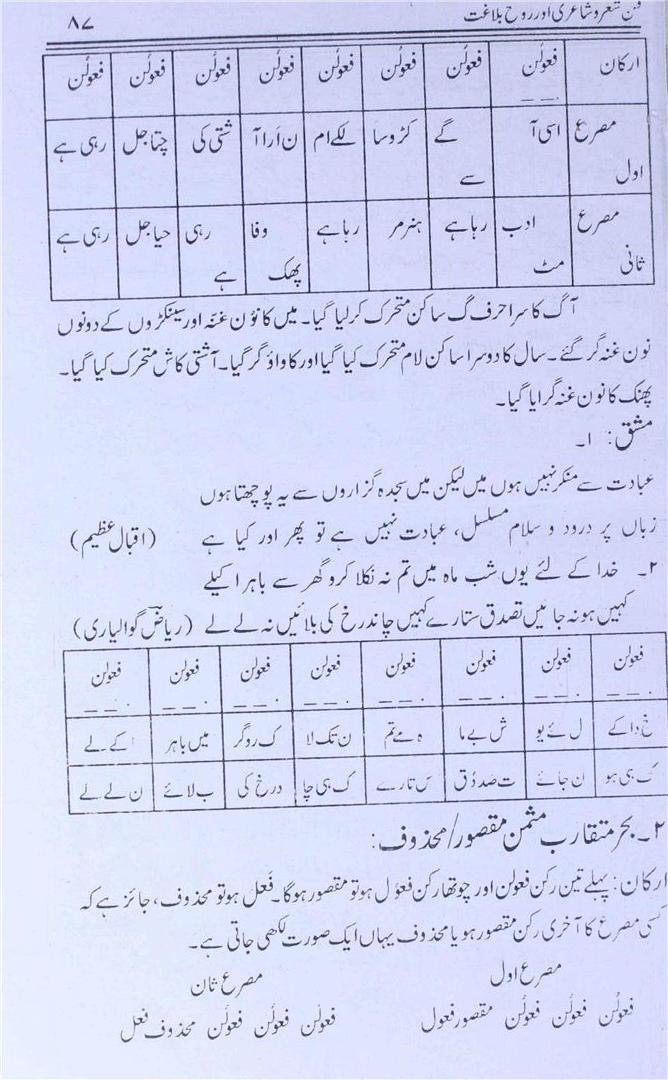 فن شعر و شاعری اور روح بلاغت ۸۷
ارکان فعولن فعولن فعولن فعولن فعولن فعولن فعولن فعولن
مصرع اول اسی آ گے سے کڑوسا لکے ام ن اَرا آ شتی کی چتا جل رہی ہے
مصرع ثانی ادب مٹ رہا ہے ہنر مر رہا ہے وفا پھک رہی ہے حیا جل رہی ہے
آگ کا سرا حرف گ ساکن متحرک کر لیا گیا۔ میں کا نون غنہ اور سینکڑوں کے دونوں
نون غنہ گر گئے۔ سال کا دوسرا ساکن لام متحرک کیا گیا اور کا واؤ گر گیا۔ آشتی کا ش متحرک کیا گیا۔
پھنک کا نون غنہ گرایا گیا۔
مشق: ۱۔
عبادت سے منکر نہیں ہوں میں لیکن میں سجدہ گزاروں سے یہ پوچھتا ہوں
زباں پر درود و سلام مسلسل، عبادت نہیں ہے تو پھر اور کیا ہے (اقبال عظیم)
۲۔ خدا کے لئے یوں شب ماہ میں تم نہ نکلا کرو گھر سے باہر اکیلے
کہیں ہو نہ جائیں تصدق ستارے کہیں چاند رخ کی بلائیں نہ لے لے (ریاض گوالیاری)
فعولن فعولن فعولن فعولن فعولن فعولن فعولن فعولن
خ دا کے ل ئے یو ش بے ما ہ مے تم ن نک لا ک رو گر میں باہر اکے لے
ک ہی ہو ن جائے ت صد دُق س تارے ک ہی چا د رخ کی ب لائے ن لے لے
۲۔ بحر متقارب مثمن مقصور/محذوف:
ارکان: پہلے تین رکن فعولن اور چوتھا رکن فعول ہو تو مقصور ہوگا۔ فَعل ہو تو محذوف، جائز ہے کہ
کسی مصرع کا آخری رکن مقصور ہو یا محذوف یہاں ایک صورت لکھی جاتی ہے۔
مصرع اول مصرع ثان
فعولن فعولن فعولن مقصور فعول فعولن فعولن فعولن محذوف فعل